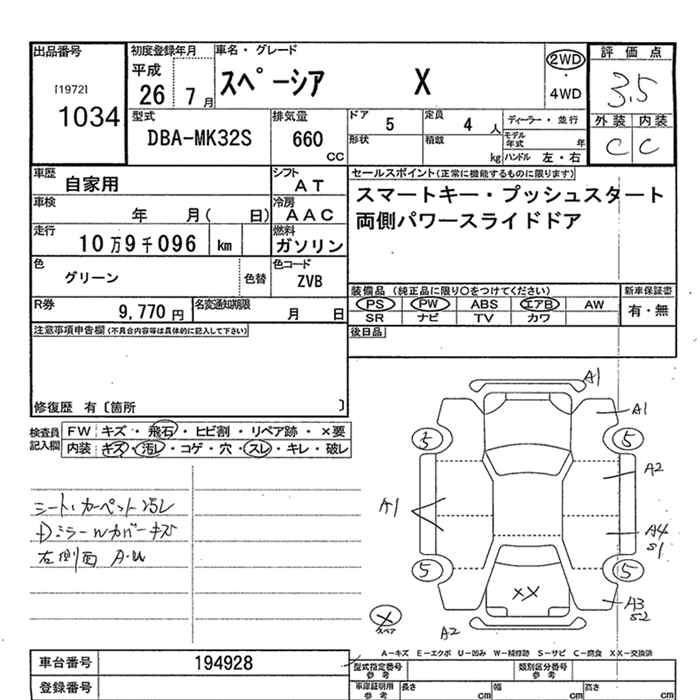 出品番号
[1972]
1034
初度登録年月
平成
26 7月
車名・グレード
スペーシア X
2WD
・
4WD
評価点
3.5
外装 内装
C C
型式
DBA-MK32S
排気量
660
CC
ドア 5
定員 4 人
形状
積載 kg
ディーラー・並行
モデル年式 年
ハンドル 左・右
車歴
自家用
シフト
AT
車検
年 月( 日)
冷房
AAC
走行
10万9千096 km
燃料
ガソリン
色
グリーン
色替
色コード
ZVB
R券
9,770円
名変通知期限
月 日
セールスポイント(正常に機能するものに限ります)
スマートキー・プッシュスタート
両側パワースライドドア
装備品 (純正品に限り○をつけてください)
PS PW ABS エアB AW
SR ナビ TV カワ
新車保証書
有・無
後日品
注意事項申告欄(不具合内容等は具体的に記入して下さい)
修復歴 有〔箇所 〕
検査員
記入欄
FW キズ・飛石・ヒビ割・リペア跡・×要
内装 キズ・汚レ・コゲ・穴・スレ・キレ・破レ
シート・カーペット汚レ
Dミラーカバーキズ
右側面 A・U
A1
A1
5
5
A2
A1
A4
S1
5
5
XX
A3
S2
×
スペア
A2
A-キズ E-エクボ U-凹み W-補修跡 S-サビ C-腐食 XX-交換済
車台番号 194928
登録番号
型式指定番号
参考
類別区分番号
参考
車庫証明用
参考
長さ cm
幅 cm
高さ cm